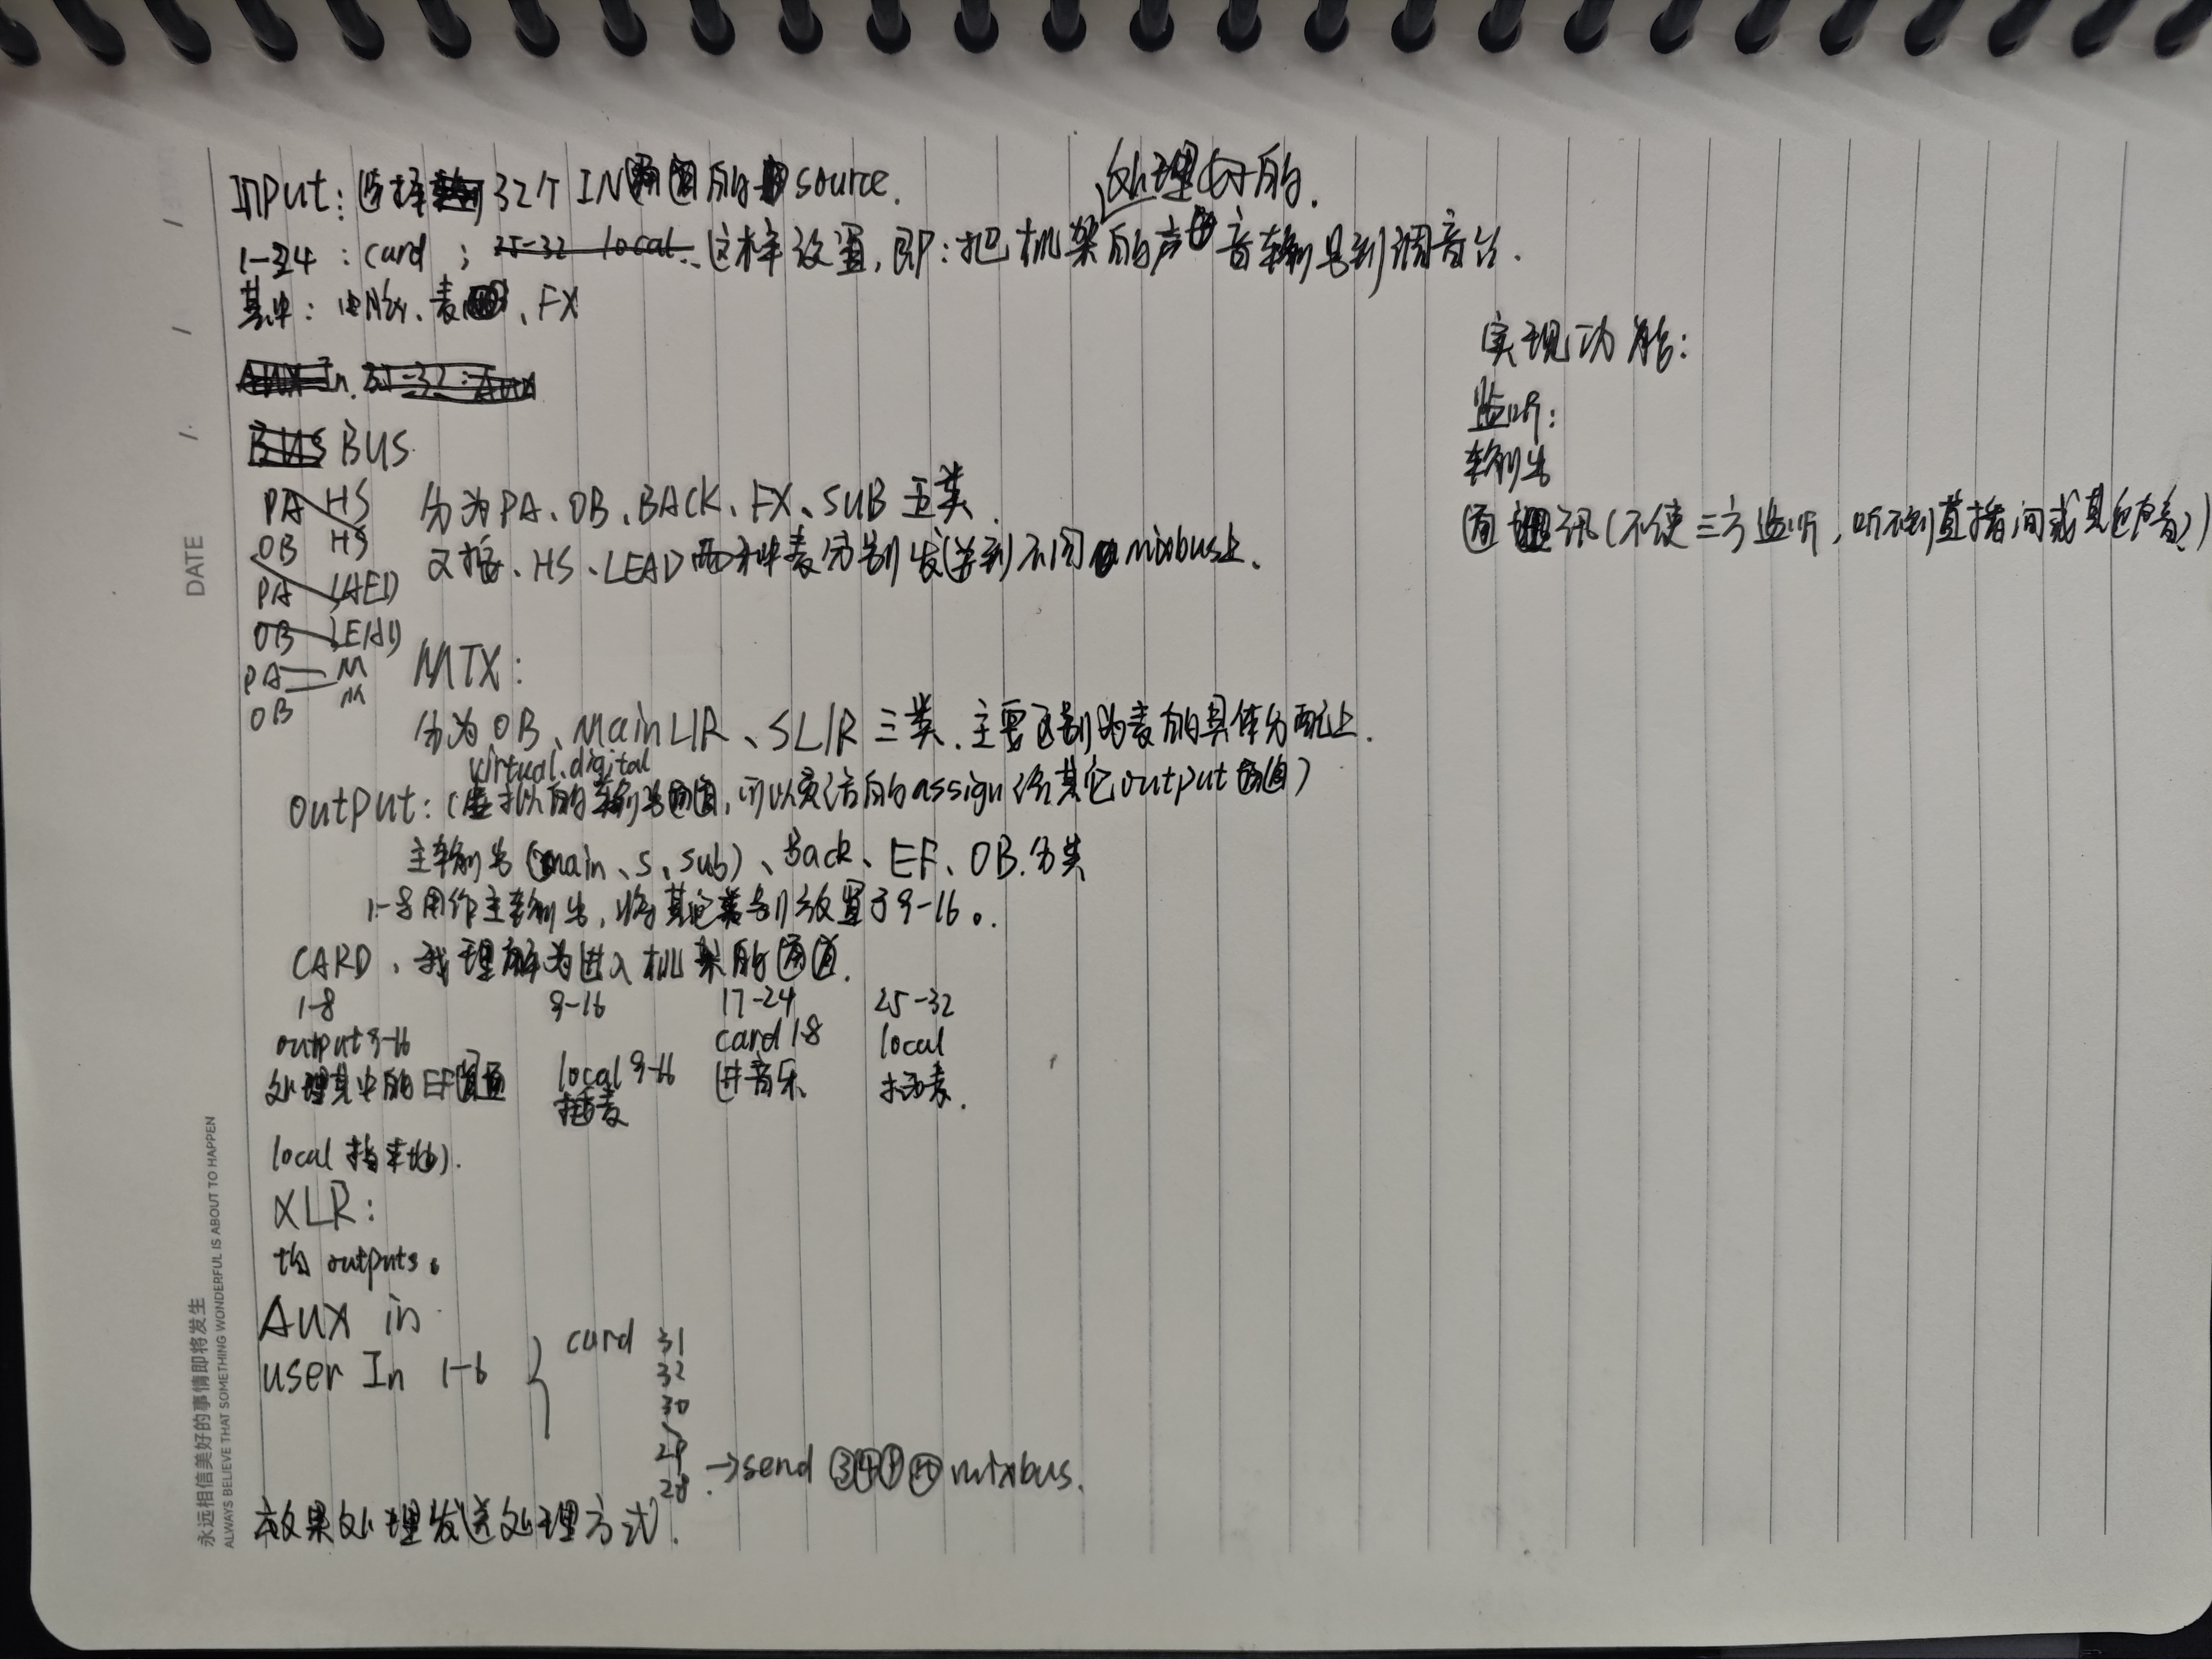 Input: 选择32个IN通道的source.
处理好的.
1-24 : card ; 25-32 local. 这样设置, 即: 把机架的声音输出到调音台.
其中: 电脑、麦、FX
实现功能:
AUX In. 31-32: Aux
监听:
BUS BUS
输出
PA HS 分为PA、OB、BACK、FX、SUB 五类.
OB HS 又按、HS、LEAD两种麦分别发送到不同mixbus上.
通讯(不使三方监听, 听不到直播间或其它声音?)
PA LAED
OB LEAD
PA M MTX:
OB M 分为OB、Main L/R、SL/R三类. 主要区别为麦的具体分配上.
virtual.digital
output: (虚拟的输出通道, 可以灵活的assign给其它output通道)
主输出(main、S、sub)、Back、EF、OB.分类
1-8用作主输出, 将其它类别放置于9-16。.
CARD、我理解为进入机架的通道.
1-8 9-16 17-24 25-32
output 9-16 card 1-8 local
处理其中的EF通道 local 9-16 进音乐 插麦.
插麦
local 指本地.
XLR:
均outputs。
Aux in
user In 1-6 { card 31
32
30
29
28. →send ③④⑨⑩ mixbus.
效果处理发送处理方式.
DATE
永远相信美好的事情即将发生
ALWAYS BELIEVE THAT SOMETHING WONDERFUL IS ABOUT TO HAPPEN